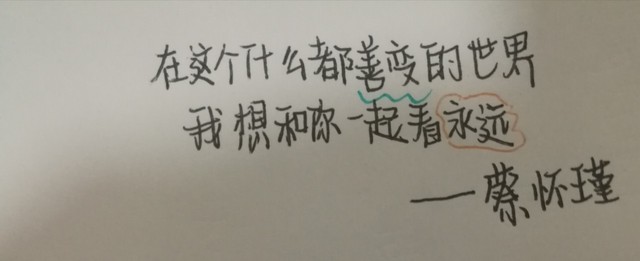 在这个什么都善变的世界
我想和你一起看永远
——蔡怀瑾